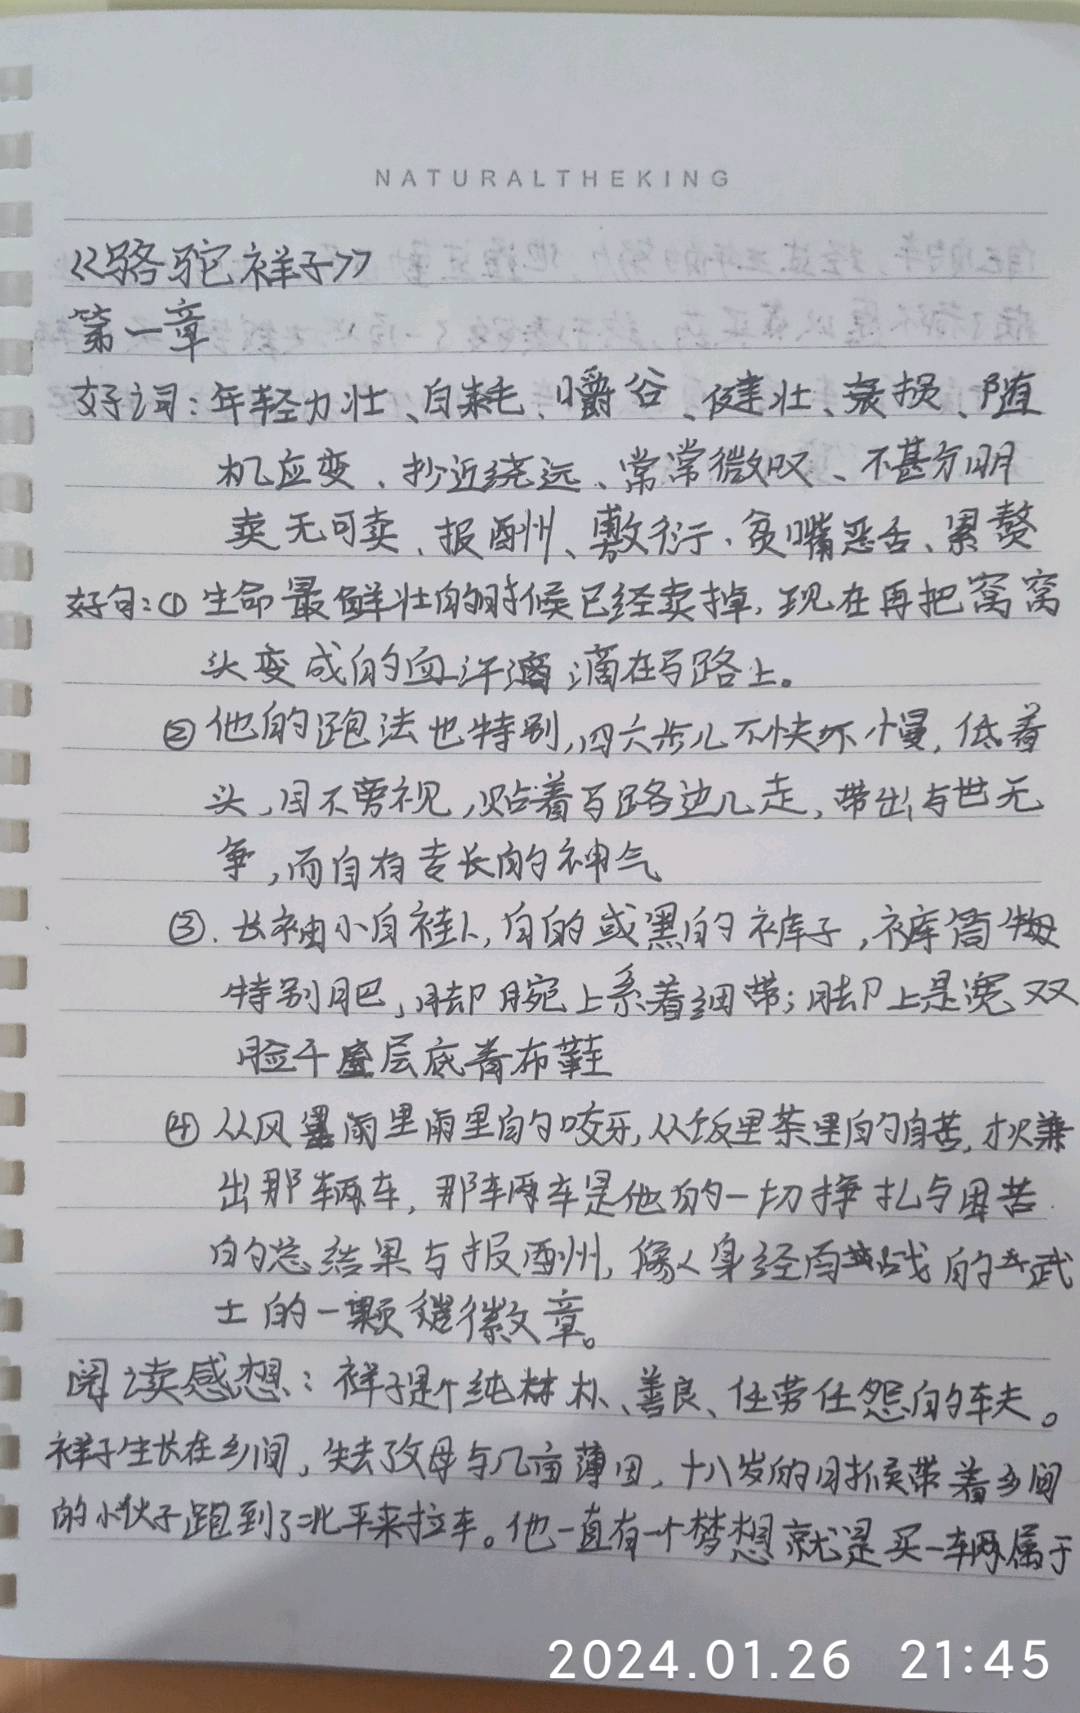 NATURALTHEKING
《骆驼祥子》
第一章
好词：年轻力壮、自耗、嚼谷、健壮、衰损、随
机应变、抄近绕远、常常微叹、不甚分明
卖无可卖、报酬、敷衍、贫嘴恶舌、累赘
好句：① 生命最鲜壮的时候已经卖掉，现在再把窝窝
头变成的血汗滴在马路上。
② 他的跑法也特别，四六步儿不快不慢，低着
头，目不旁视，贴着马路边儿走，带出与世无
争，而自有专长的神气
③. 长袖小白褂儿，白的或黑的裤子，裤筒
特别肥，脚腕上系着细带；脚上是宽双
脸千层底青布鞋
④ 从风里雨里的咬牙，从饭里茶里的自苦，才赚
出那辆车，那辆车是他的一切挣扎与困苦
的总结果与报酬，像身经百战的武
士的一颗徽章。
阅读感想：祥子是个纯朴、善良、任劳任怨的车夫。
祥子生长在乡间，失去了父母与几亩薄田，十八岁的时候带着乡间
的小伙子跑到了北平来拉车。他一直有一个梦想就是买一辆属于
2024.01.26 21:45